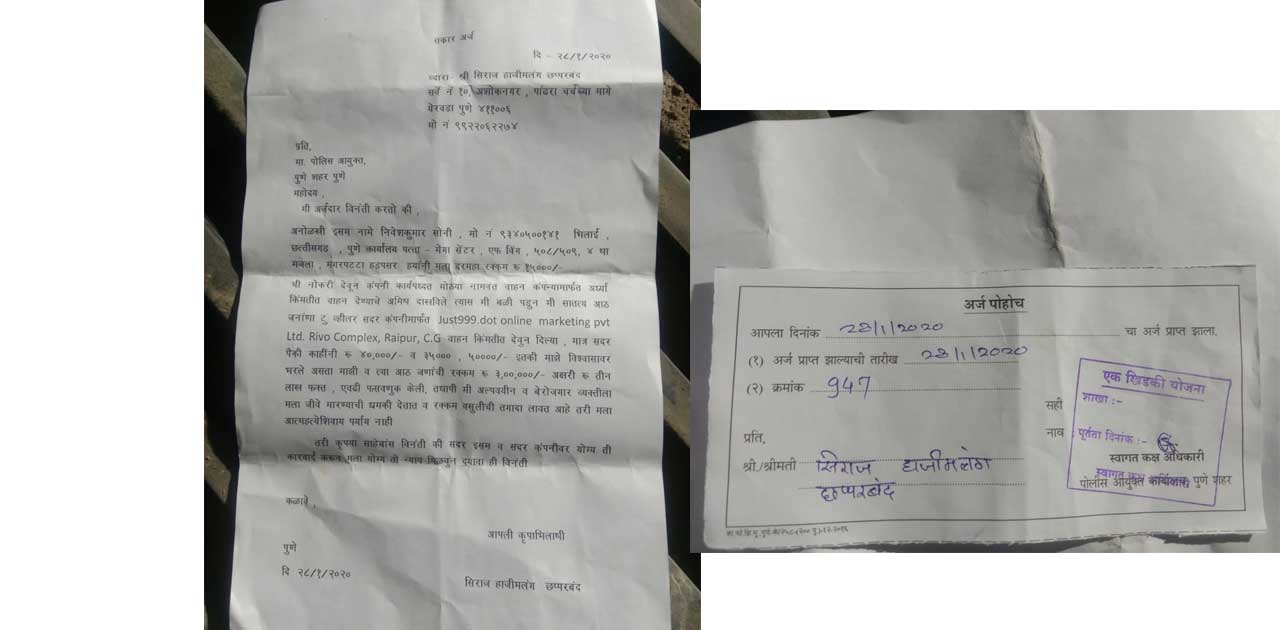 तकार अर्ज
दि - २८/१/२०२०
व्दारा- श्री सिराज हाजीमलंग छप्परबंद
सर्वे नं १०, अशोकनगर , पांढरा चर्चच्या मागे
येरवडा पुणे ४११००६
मो नं ९९२२०६२२७४
प्रति,
मा. पोलिस आयुक्त,
पुणे शहर पुणे
महोदय ,
मी अर्जदार विनंती करतो की ,
अनोळखी इसम नामे निवेशकुमार सोनी , मो नं ९३४०५००१४१ भिलाई ,
छत्तीसगड , पुणे कार्यालय पत्ता - मेगा सेंटर , एफ विंग , ५०८/५०९, ४ था
मजला , मगरपटटा हडपसर हयांनी मला दरमहा रक्कम रु १५०००/-
ची नोकरी देवून कंपनी कार्यपध्दत मोठया नामवंत वाहन कंपन्यामार्फत अर्ध्या
किंमतीत वाहन देण्याचे अमिष दाखविले त्यास मी बळी पडुन मी सातत्य आठ
जनांना टु व्हीलर सदर कंपनीमार्फत Just999.dot online marketing pvt
Ltd. Rivo Complex, Raipur, C.G वाहन किंमतीत देवुन दिल्या , मात्र सदर
पैकी काहींनी रु ४०,०००/- व ३५००० , ५००००/- इतकी माझे विश्वासावर
भरले असता माझी व त्या आठ जणांची रक्कम रु ३,००,०००/- अक्षरी रु तीन
लाख फक्त , एवढी फसवणुक केली, तथापी मी अल्पवयीन व बेरोजगार व्यक्तीला
मला जीवे मारण्याची धमकी देतात व रक्कम वसुलीची तगादा लावत आहे तरी मला
आत्महत्येशिवाय पर्याय नाही
तरी कृपया साहेबांस विनंती की सदर इसम व सदर कंपनीवर योग्य ती
कारवाई करून मला योग्य तो न्याय मिळवुन दयावा ही विनंती
कळावे ,
आपली कृपाभिलाषी
पुणे
दि २८/१/२०२०
सिराज हाजीमलंग छप्परबंद
अर्ज पोहोच
आपला दिनांक 28/1/2020 चा अर्ज प्राप्त झाला.
(१) अर्ज प्राप्त झाल्याची तारीख 28/1/2020
(२) क्रमांक 947
एक खिडकी योजना
शाखा :-
सही
नाव :
पूर्तता दिनांक :-
प्रति,
स्वागत कक्ष अधिकारी
श्री./श्रीमती सिराज हाजीमलंग
छप्परबंद
स्वागत कक्ष अधिकारी
पोलीस आयुक्त कार्यालय, पुणे शहर